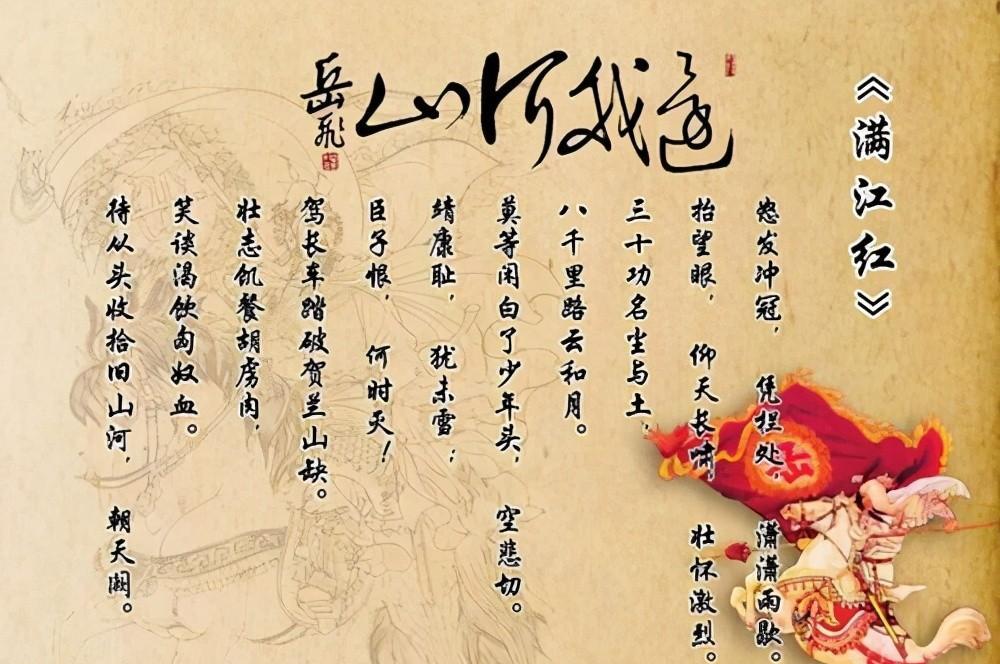 還我河山
岳飛
《满江红》
怒发冲冠，凭栏处，潇潇雨歇。
抬望眼，仰天长啸，壮怀激烈。
三十功名尘与土，
八千里路云和月。
莫等闲白了少年头，空悲切。
靖康耻，犹未雪；
臣子恨，何时灭！
驾长车踏破贺兰山缺。
壮志饥餐胡虏肉，
笑谈渴饮匈奴血。
待从头收拾旧山河，朝天阙。